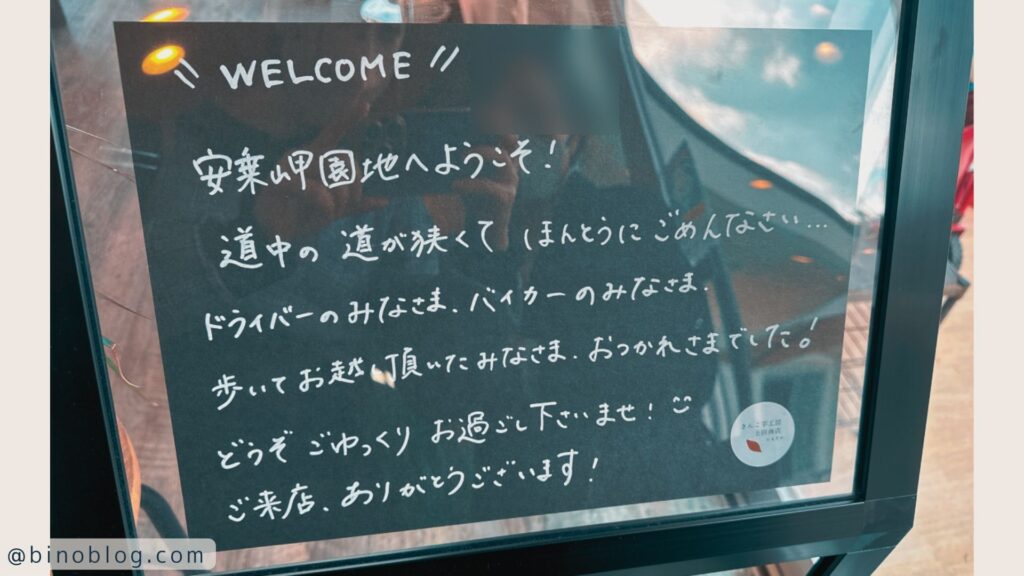 \\ WELCOME //
安乗岬園地へようこそ!
道中の 道が狭くて ほんとうに ごめんなさい...
ドライバーのみなさま、バイカーのみなさま、
歩いてお越し頂いたみなさま、おつかれさまでした!
どうぞ ごゆっくり お過ごし下さいませ!
ご来店、ありがとうございます!
きんこ芋工房
上田商店
@binoblog.com